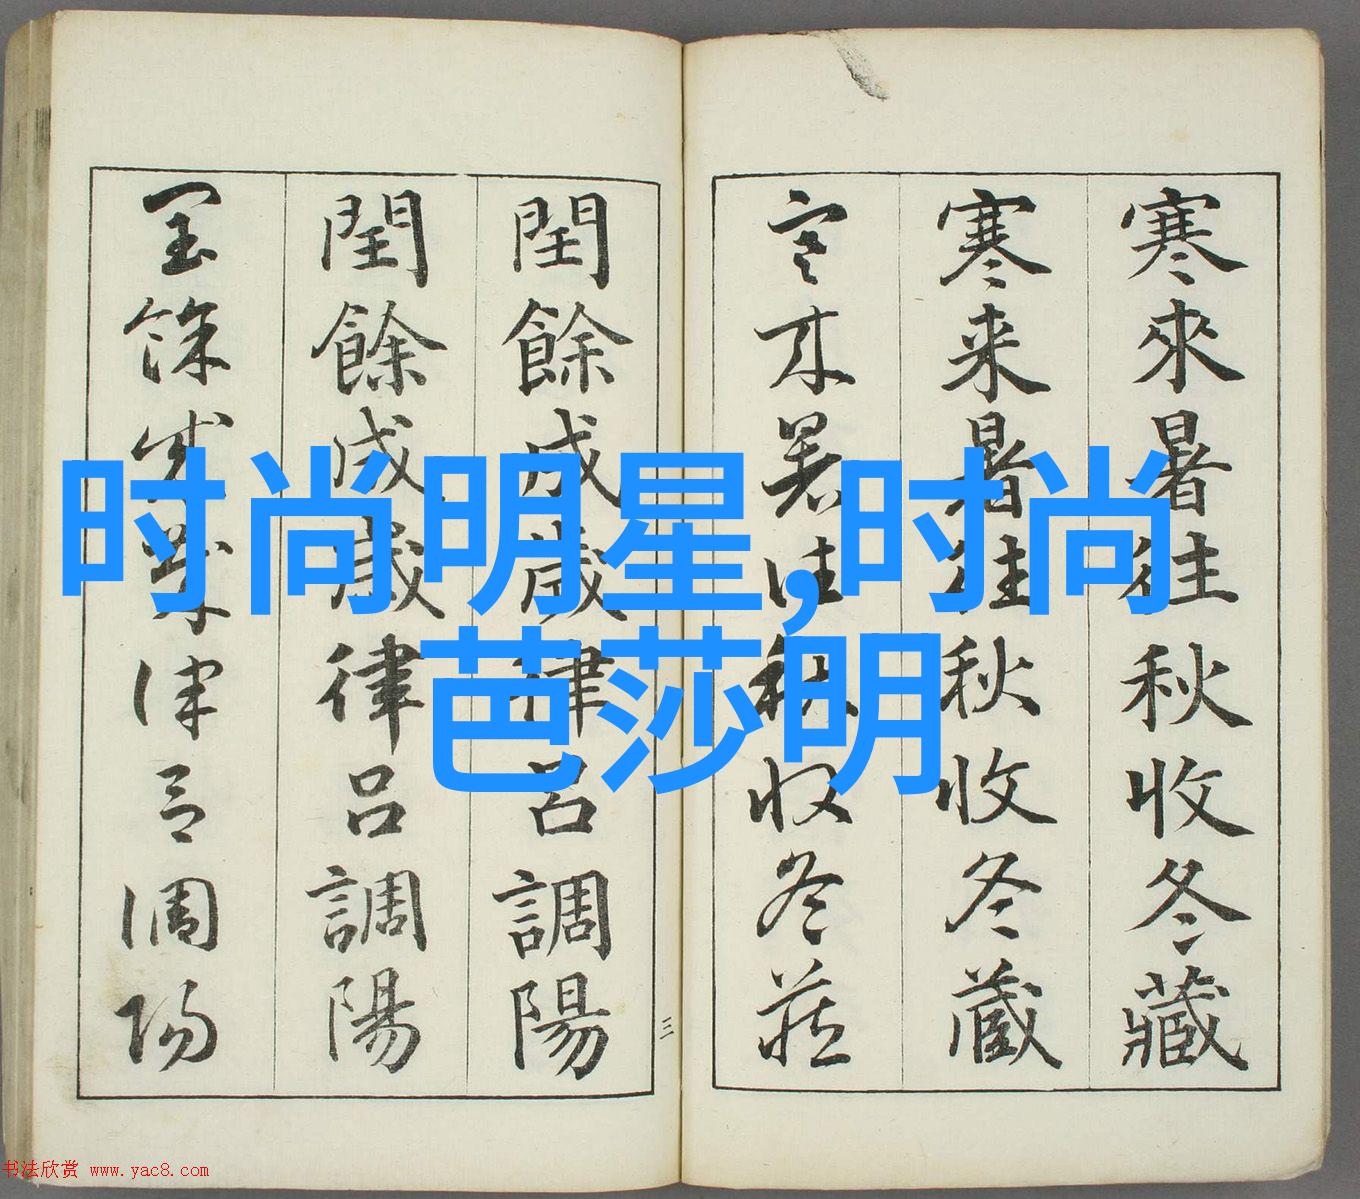 寒來暑往秋收冬藏
寒来暑往秋收冬蔵
寒来暑往秋收冬藏
閏餘成歲律吕調陽
閏餘成歲律吕調陽
閏餘成歲律吕調陽
三
时尚明星,时尚
芭莎明
书法欣赏 www.yac8.com